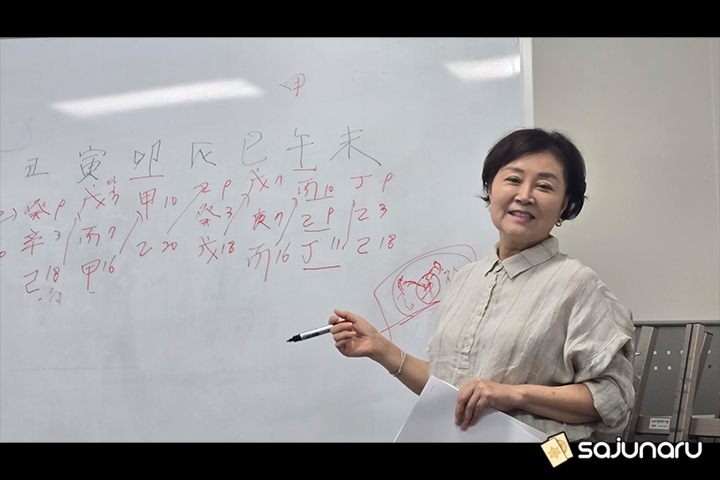 甲
丑 寅 卯 辰 巳 午 未
癸9 戊7 甲10 乙9 戊7 丙10 丁9
辛3 丙7 乙20 癸3 庚7 己9 乙3
己18 甲16 戊18 丙16 丁11 己18
sajunaru